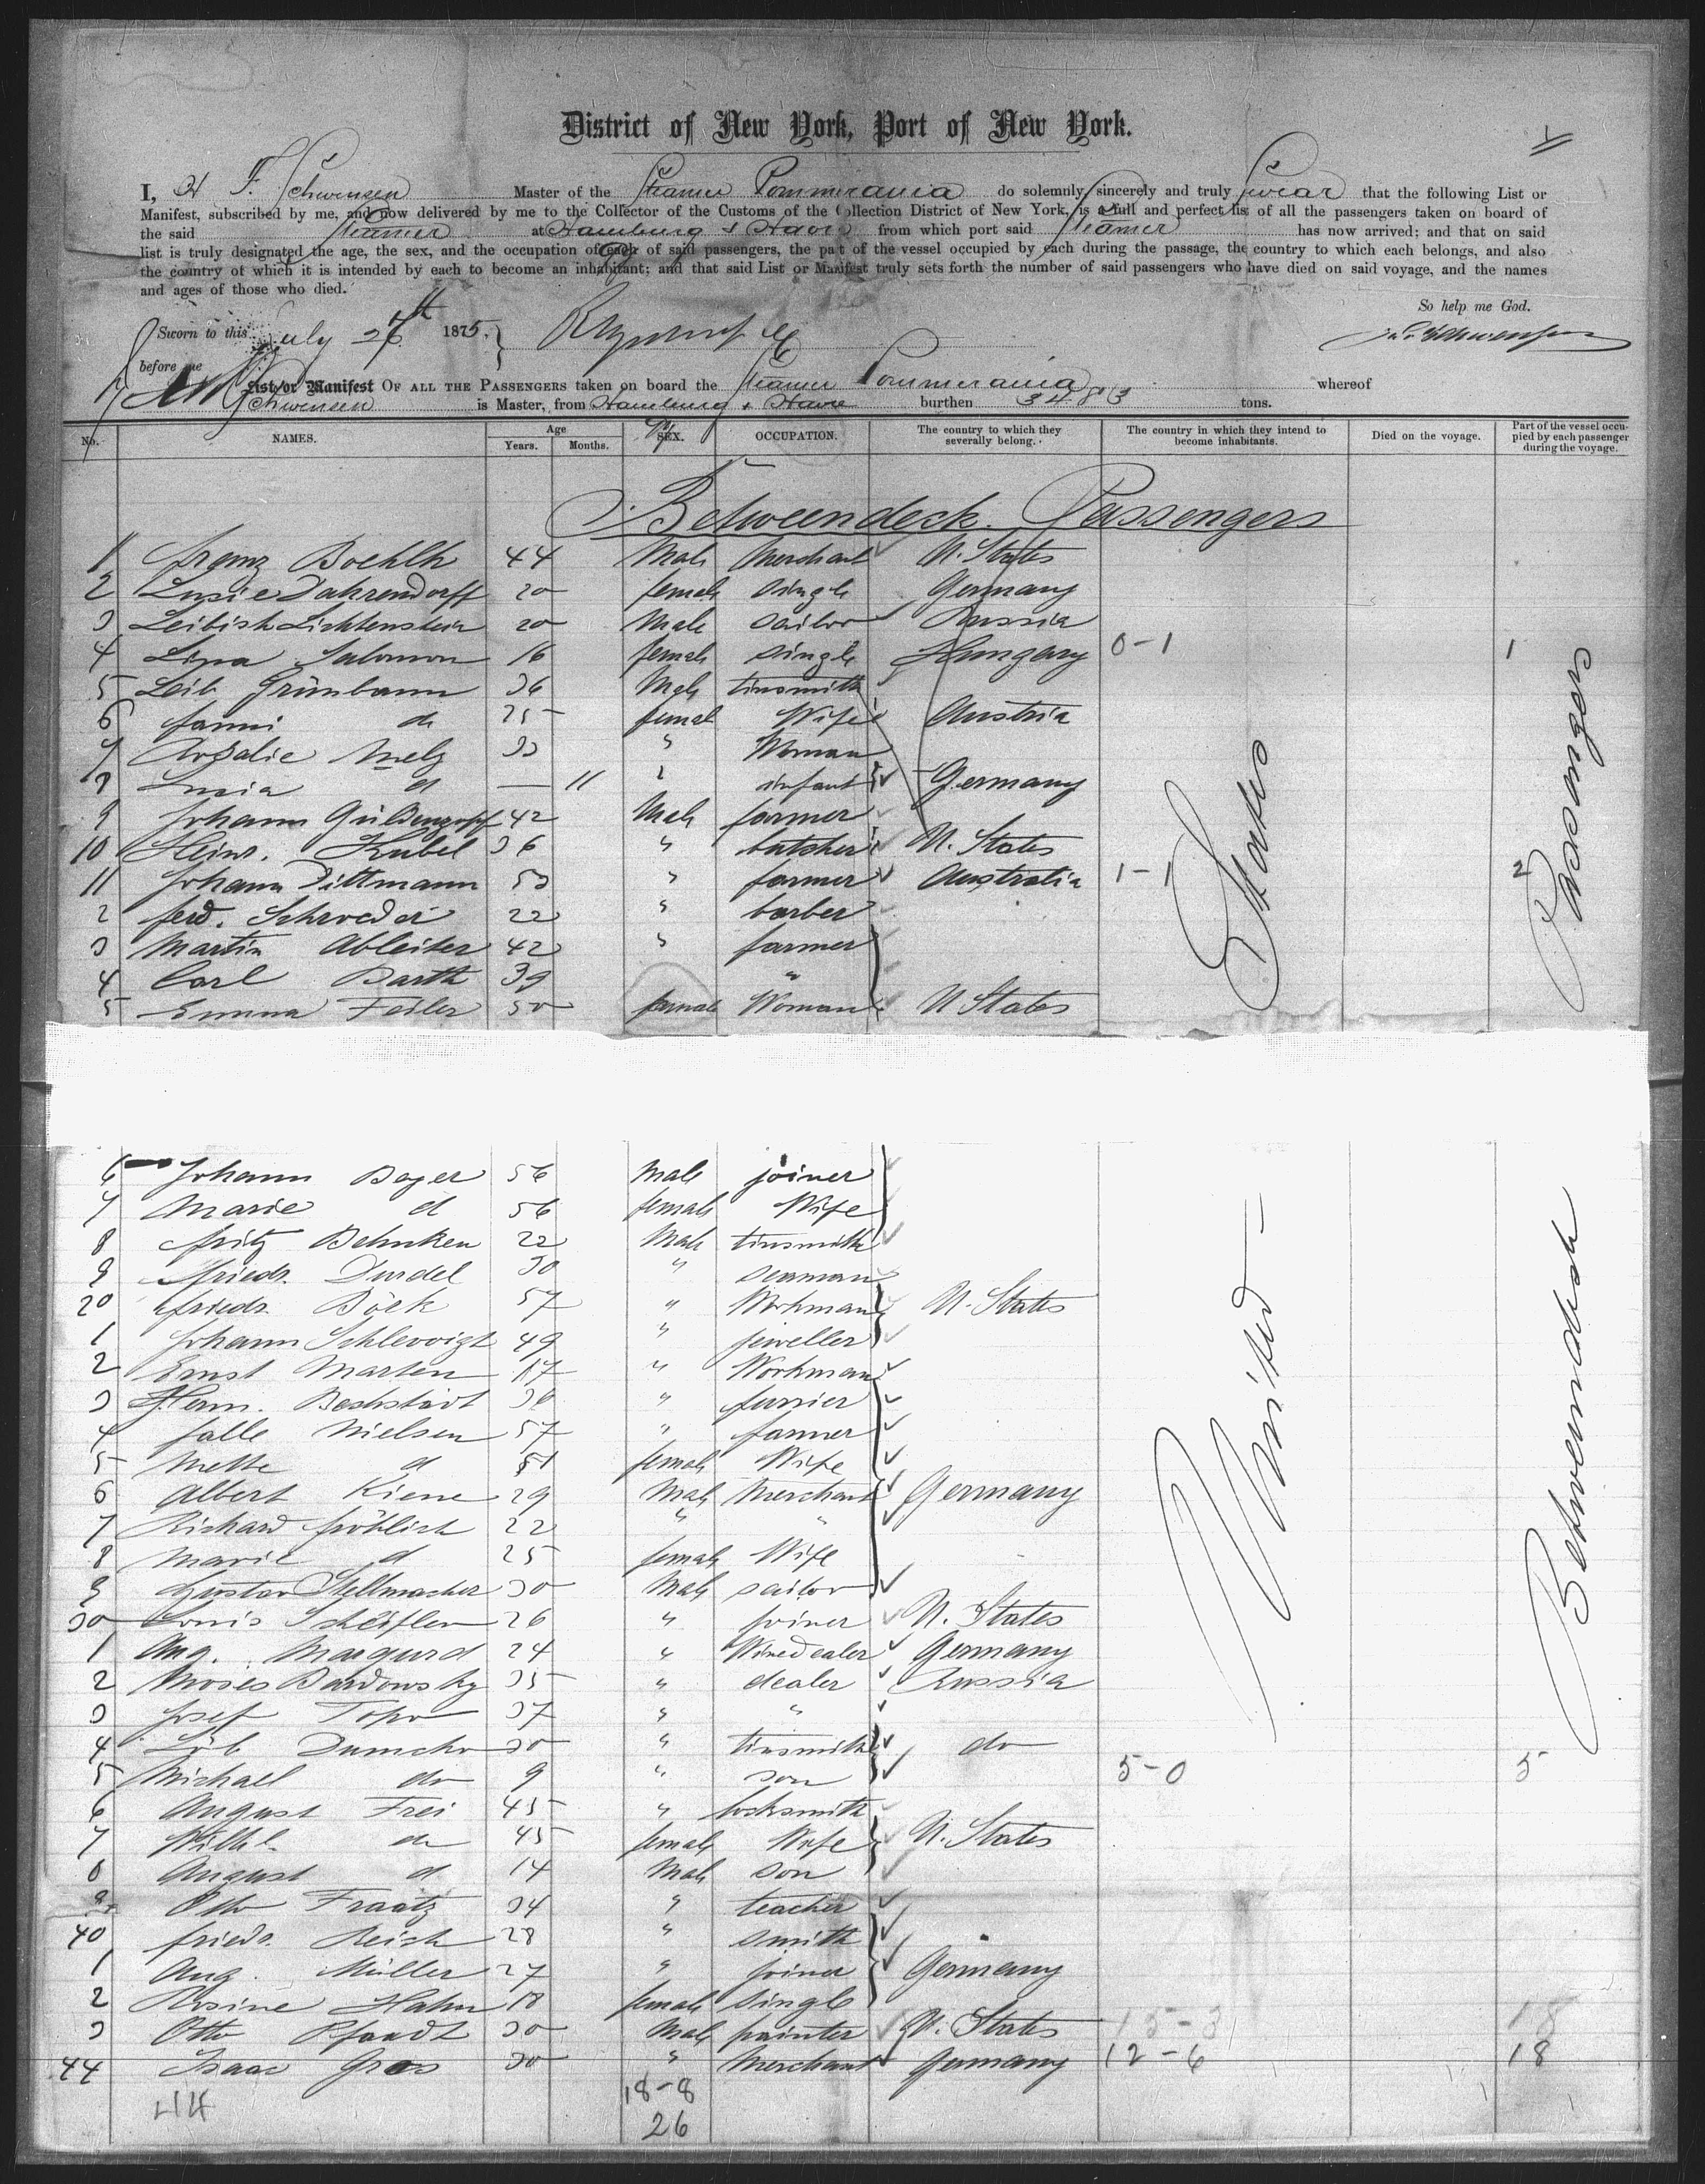 District of New York, Port of New York.
I, H F. Schwensen Master of the Steamer Pommerania do solemnly, sincerely and truly Swear that the following List or
Manifest, subscribed by me, and now delivered by me to the Collector of the Customs of the Collection District of New York, is a full and perfect list of all the passengers taken on board of
the said Steamer at Hamburg & Havre from which port said Steamer has now arrived; and that on said
list is truly designated the age, the sex, and the occupation of each of said passengers, the part of the vessel occupied by each during the passage, the country to which each belongs, and also
the country of which it is intended by each to become an inhabitant; and that said List or Manifest truly sets forth the number of said passengers who have died on said voyage, and the names
and ages of those who died.
So help me God.
Sworn to this July 26th 1875.
before me
List or Manifest OF ALL THE PASSENGERS taken on board the Steamer Pommerania whereof
Schwensen is Master, from Hamburg & Havre burthen 3483 tons.
No. NAMES. Age Years. Months. SEX. OCCUPATION. The country to which they severally belong. The country in which they intend to become inhabitants. Died on the voyage. Part of the vessel occupied by each passenger during the voyage.
Betweendeck Passengers
1 Franz Boehlh 44 Male Merchant U. States
2 Lusie Dahrendorff 20 female single Germany
3 Leibish Lichtenstein 20 Male sailor Russia
4 Lina Salomon 16 female single Hungary 0-1 1
5 Leib Grünbaum 36 Male tinsmith
6 Fanni do 25 female Wife Austria
7 Rosalie Melz 33 " Woman
8 Lusia d — 11 " infant Germany
9 Johann Güldenzopf 42 Male farmer
10 Heinr. Kubel 36 " butcher U. States
11 Johann Dittmann 53 " farmer Australia 1-1 2
2 Ferd. Schroeder 22 " barber
3 Martin Ableiter 42 " farmer
4 Carl Barth 39 "
5 Emma Feiler 50 female Woman U States
6 Johann Bayer 56 Male joiner
7 Marie d 56 female Wife
8 Fritz Behnken 22 Male tinsmith
9 Friedr. Durdel 30 " seaman
20 Friedr. Böck 57 " Workman U. States
1 Johann Schlevoigt 49 " jeweller
2 Ernst Marten 17 " Workman
3 Herm. Bechstädt 36 " furrier
4 Falle Nielsen 57 " farmer
5 Mette d 51 female Wife
6 Albert Kiene 29 Male Merchant Germany
7 Richard Fröhlich 22 " "
8 Marie d 25 female Wife
9 Gustav Stellmacher 30 Male sailor
30 Louis Scheiflen 26 " joiner U. States
1 Aug. Marqurd 24 " Winedealer Germany
2 Moses Bardowsky 35 " dealer Russia
3 Josef Topor 37 " "
4 Löb Dumcho 30 " tinsmith do
5 Michael do 9 " son 5-0 5
6 August Frei 45 " locksmith
7 Wilhl. do 45 female Wife U. States
8 August d 14 Male son
9 Otto Fraatz 34 " teacher
40 Friedr. Reich 28 " smith
1 Aug. Müller 27 " joiner Germany
2 Rosine Hahn 18 female single
3 Otto Pfaadt 30 Male painter U. States 15-3 18
44 Isaac Gros 30 " Merchant Germany 12-6 18
44 18-8
26
United States
Betweendeck Passangers